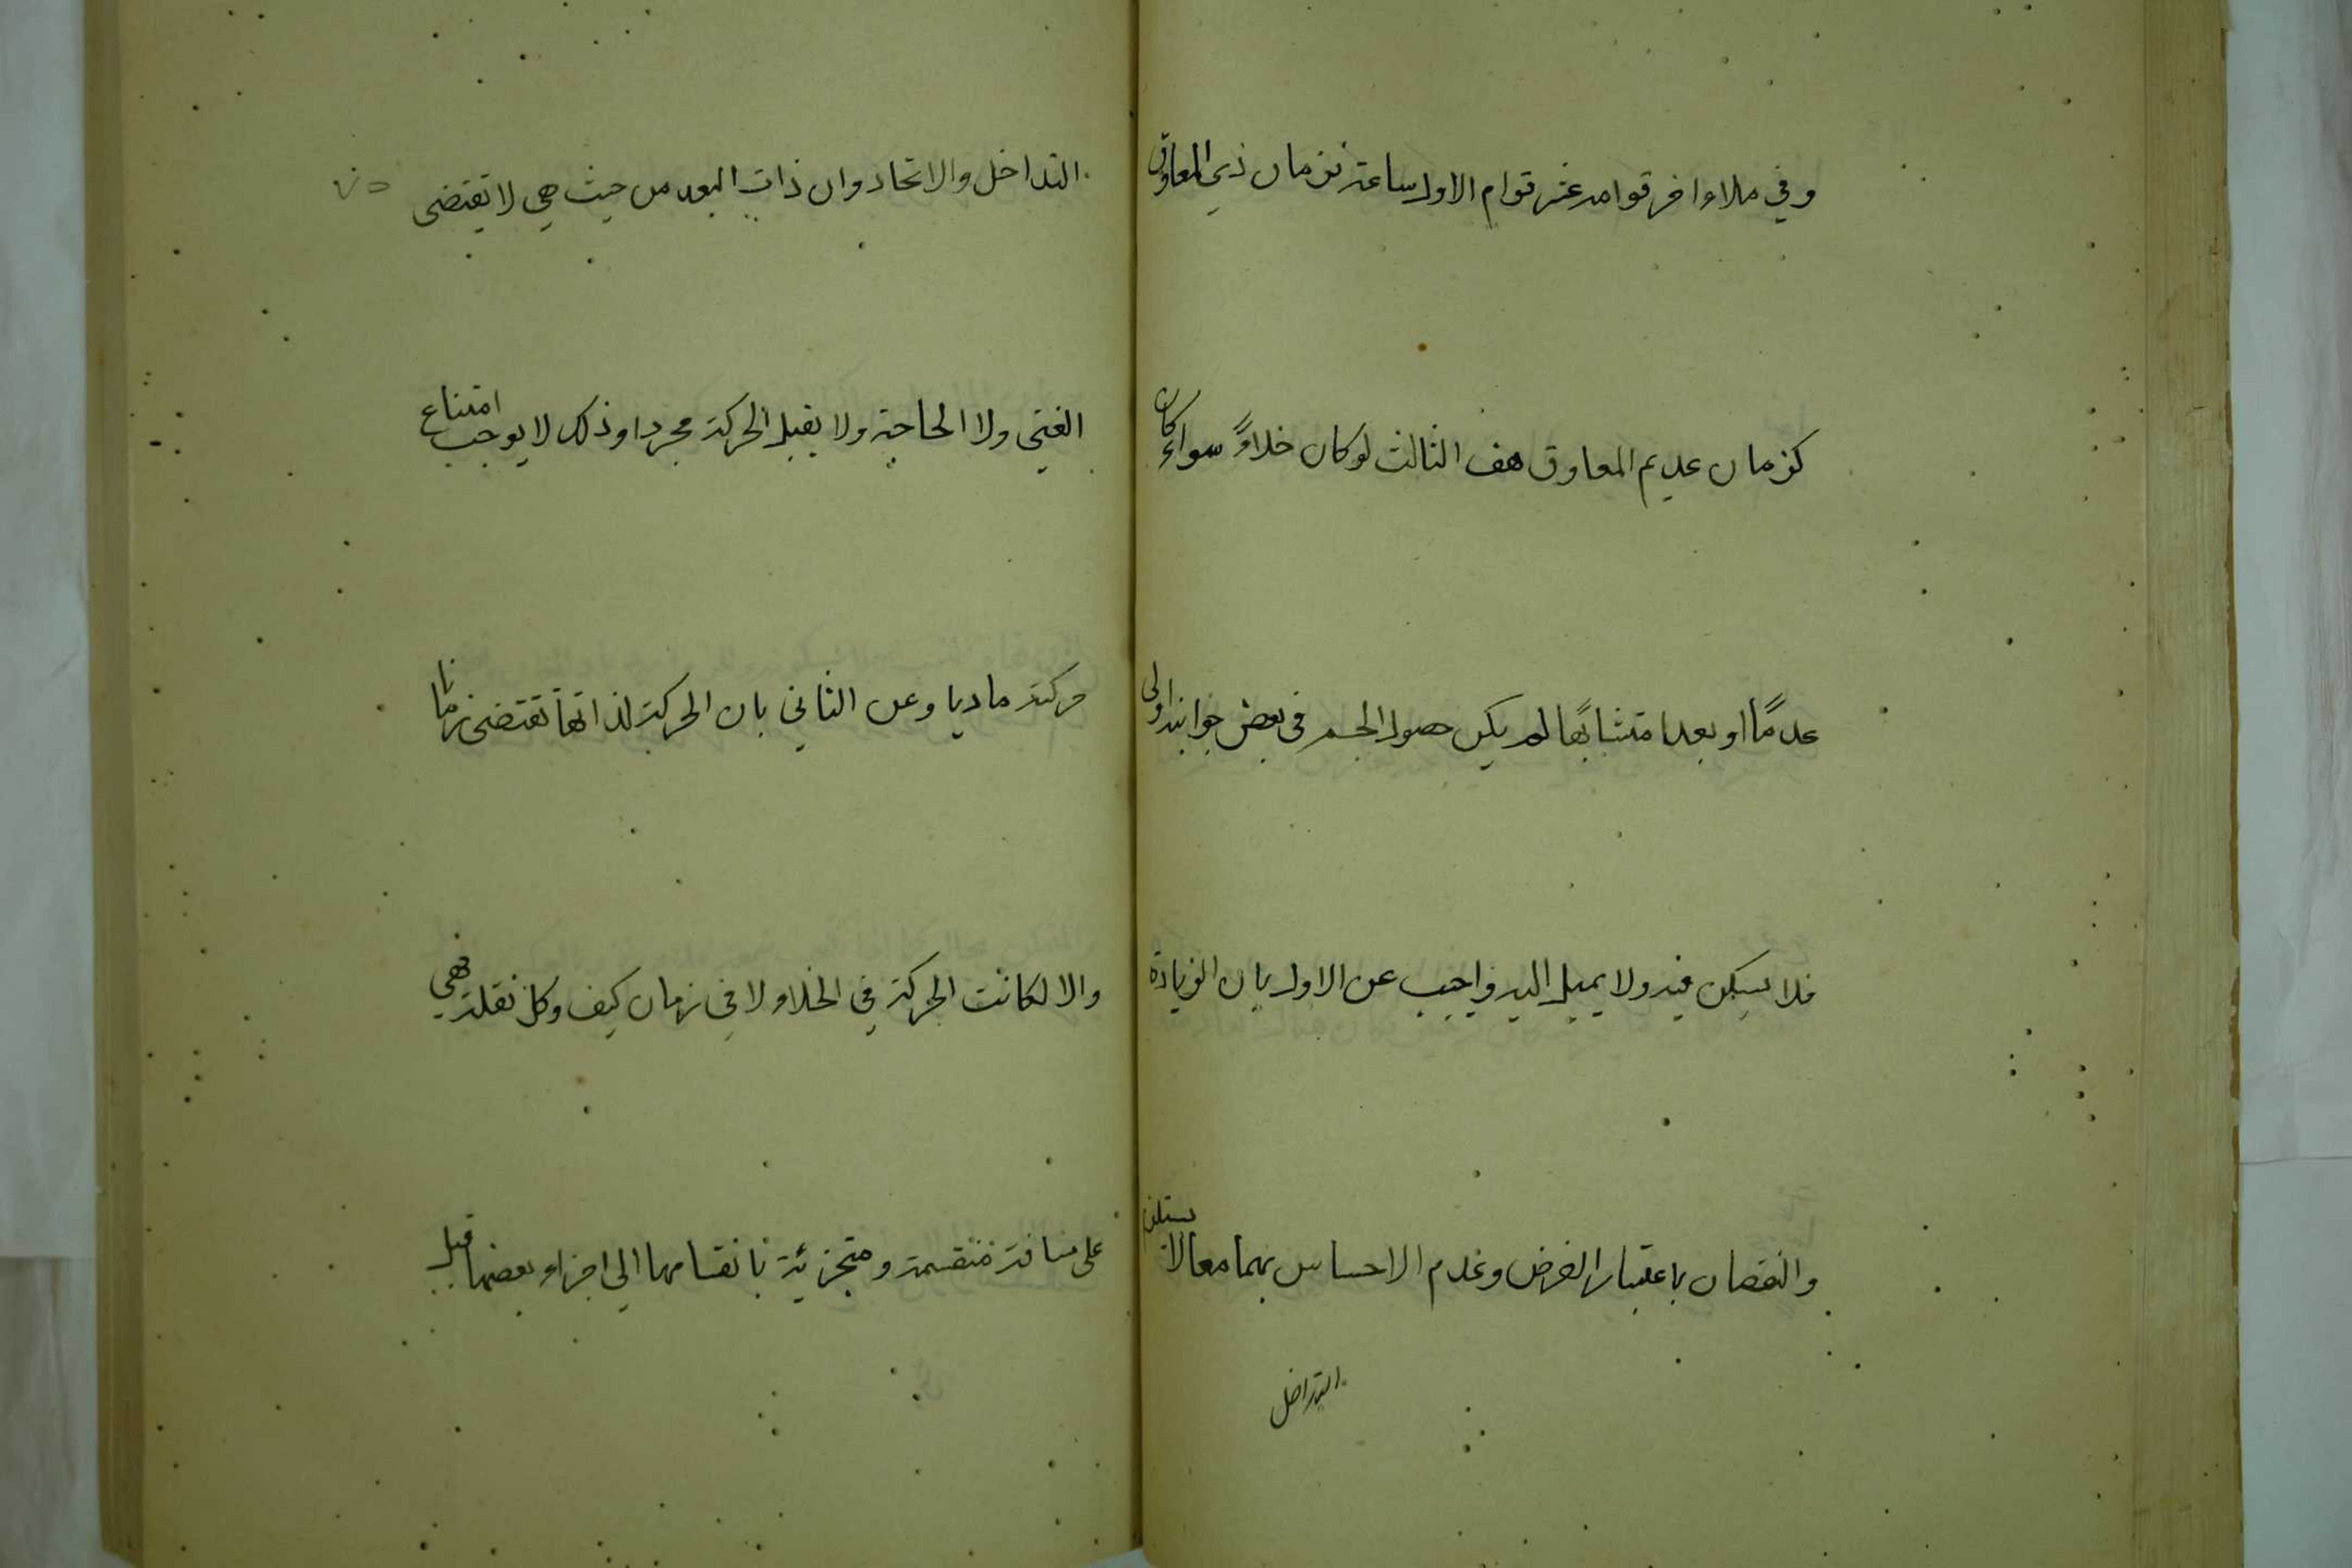 وفي ملاء اخر قوامه عشر قوام الاول ساعة فزمان ذي المعاوق
كزمان عديم المعاوق هف الثالث لو كان خلاءً سواء كان
عدمًا او بعدا متشابهًا لم يكن حصول الجسم في بعض جوانبه اولى
فلا يسكن فيه ولا يميل اليه واجيب عن الاول بان الزيادة
والنقصان باعتبار الفرض وعدم الاحساس بهما معا لا يستلزم
التداخل
التداخل والاتحاد وان ذات البعد من حيث هي لا تقتضى
الغنى ولا الحاجة ولا يقبل الحركة مجردا وذلك لا يوجب امتناع
حركته ماديا وعن الثاني بان الحركة لذاتها تقتضى زمانا
والا لكانت الحركة في الخلاء لا في زمان كيف وكل نقلة فهي
على مسافة منقسمة ومتجزئية بانقسامها الى اجزاء بعضها قبل